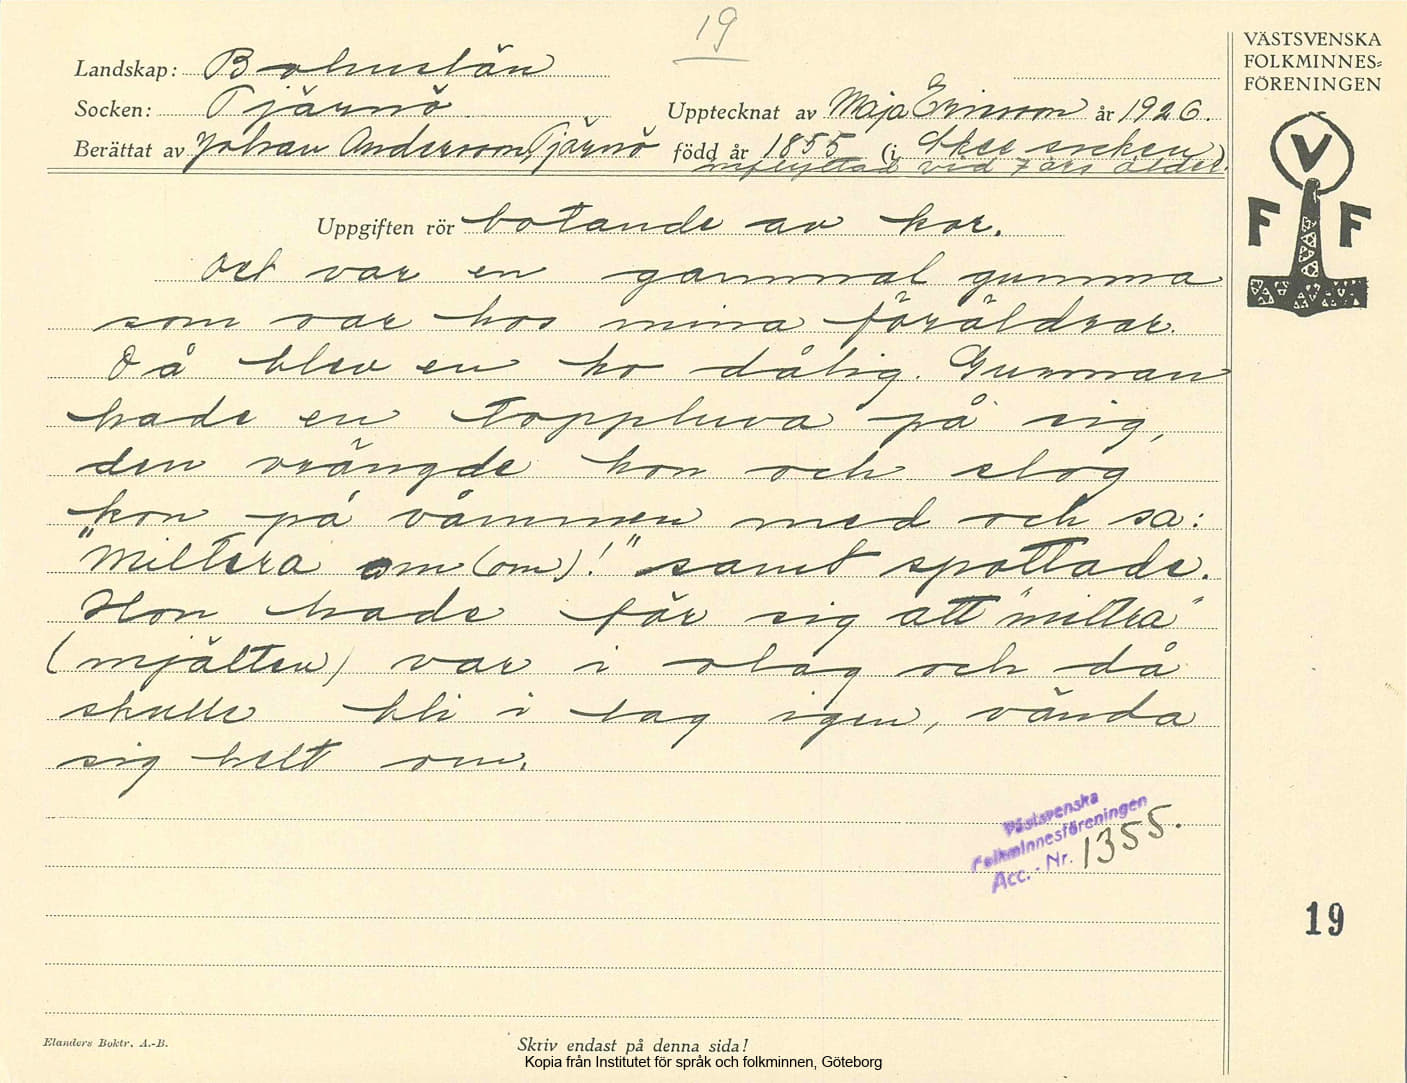 19
VÄSTSVENSKA
FOLKMINNES=
FÖRENINGEN
V
F F
Landskap: Bohuslän
Socken: Tjärnö Upptecknat av Maja Ericson år 1926.
Berättat av Johan Andersson, Tjärnö född år 1855 (i Skee socken)
inflyttad vid 7 års ålder.
Uppgiften rör botande av kor.
Det var en gammal gumma
som var hos mina föräldrar.
Då blev en ko dålig. Gumman
hade en toppluva på sig,
den vrängde hon och slog
kon på våmmen med och sa:
"Miltera om (om)!" samt spottade.
Hon hade för sig att "miltra"
(mjälten) var i olag och då
skulle bli i lag igen, vända
sig helt om.
Västsvenska
Folkminnesföreningen
Acc. - Nr. 1355.
19
Elanders Boktr. A.-B.
Skriv endast på denna sida!
Kopia från Institutet för språk och folkminnen, Göteborg